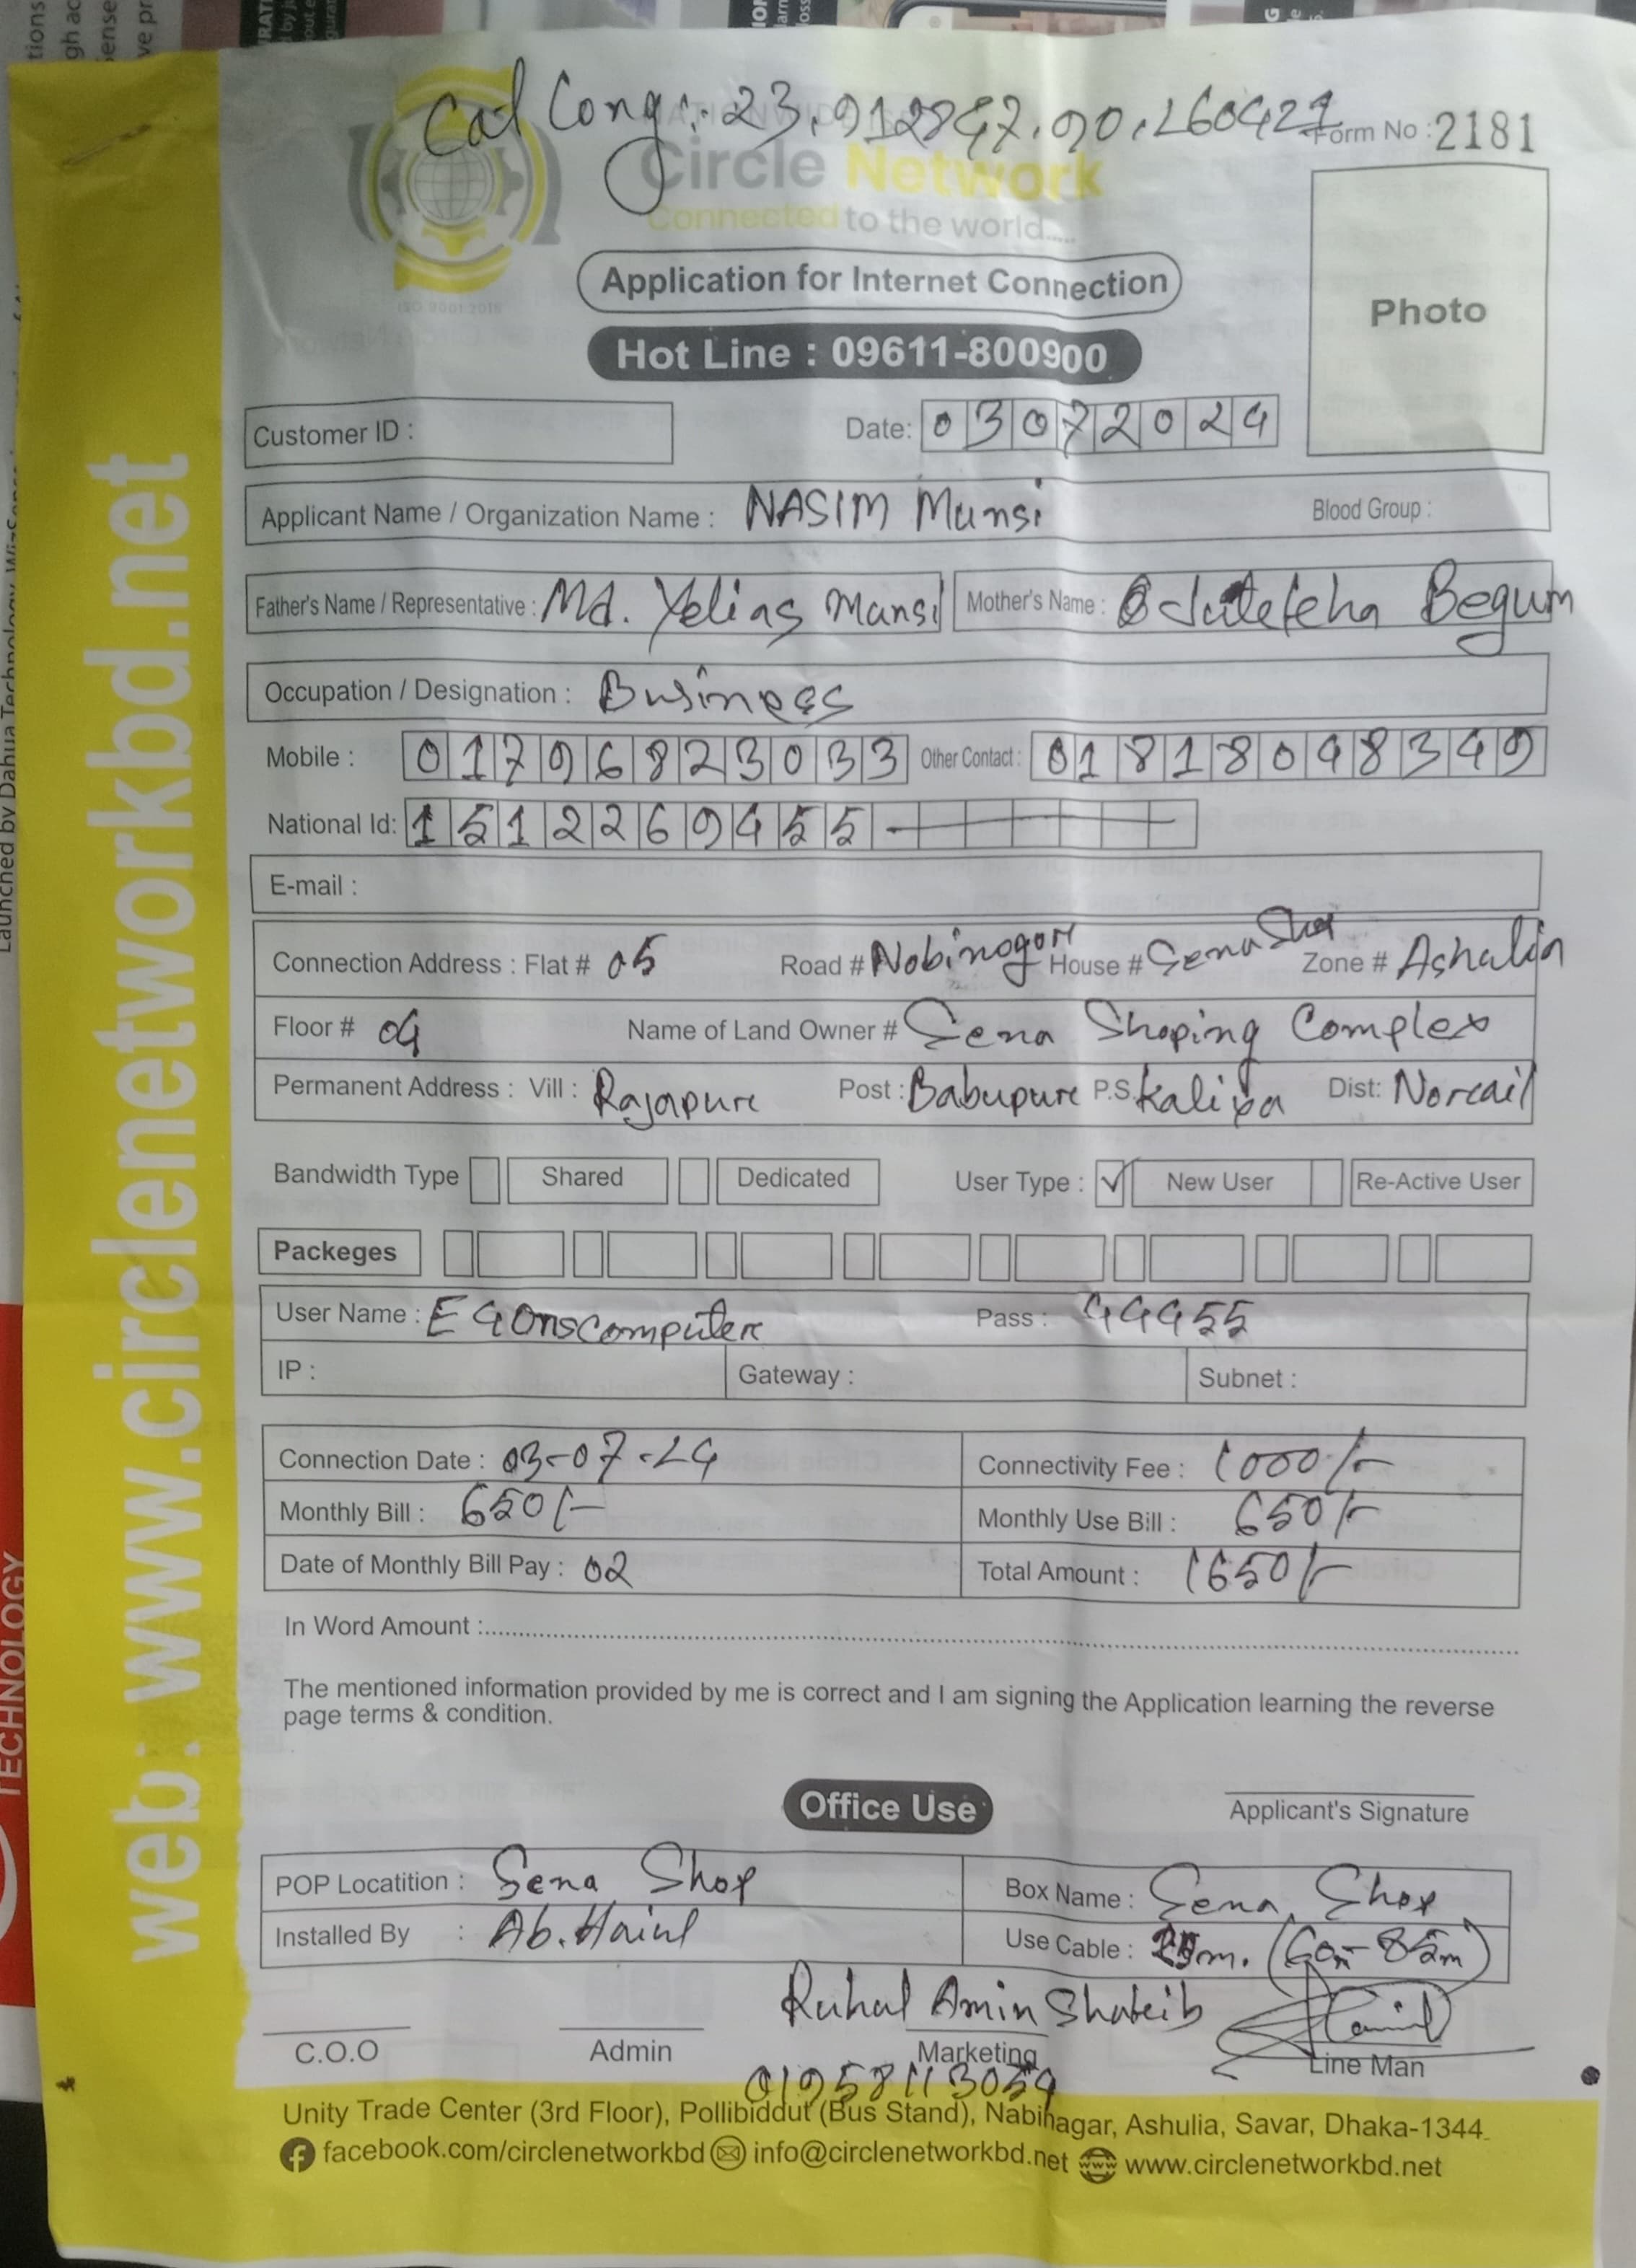 Cat Cong:- 23.912847.90.260427
Form No : 2181
Circle Network
Connected to the world....
ISO 9001:2015
Application for Internet Connection
Photo
Hot Line : 09611-800900
Customer ID :
Date: 03072024
Applicant Name / Organization Name : NASIM Munsi Blood Group :
Father's Name / Representative : Md. Yelias Munsi Mother's Name : Begum
Occupation / Designation : Business
Mobile : 01796823033 Other Contact : 01818098349
National Id: 1512269455
E-mail :
Connection Address : Flat # 05 Road # Nobinogor House # Sena Shop Zone # Ashulia
Floor # 04 Name of Land Owner # Sena Shoping Complex
Permanent Address : Vill : Rajapure Post : Babupure P.S. Kaliya Dist: Norail
Bandwidth Type Shared Dedicated User Type : ✓ New User Re-Active User
Packeges
User Name : E40nscomputer Pass : 44455
IP : Gateway : Subnet :
Connection Date : 03-07-24 Connectivity Fee : 1000/-
Monthly Bill : 650/- Monthly Use Bill : 650/-
Date of Monthly Bill Pay : 02 Total Amount : 1650/-
In Word Amount :
The mentioned information provided by me is correct and I am signing the Application learning the reverse
page terms & condition.
Office Use
Applicant's Signature
POP Locatition : Sena Shop Box Name : Sena Shop
Installed By : Ab. Use Cable : m. (60m-85m)
Ruhul Amin Shakib
C.O.O Admin Marketing Line Man
01958113054
Unity Trade Center (3rd Floor), Pollibiddut (Bus Stand), Nabinagar, Ashulia, Savar, Dhaka-1344.
facebook.com/circlenetworkbd info@circlenetworkbd.net www.circlenetworkbd.net
web: www.circlenetworkbd.net
TECHNOLOGY